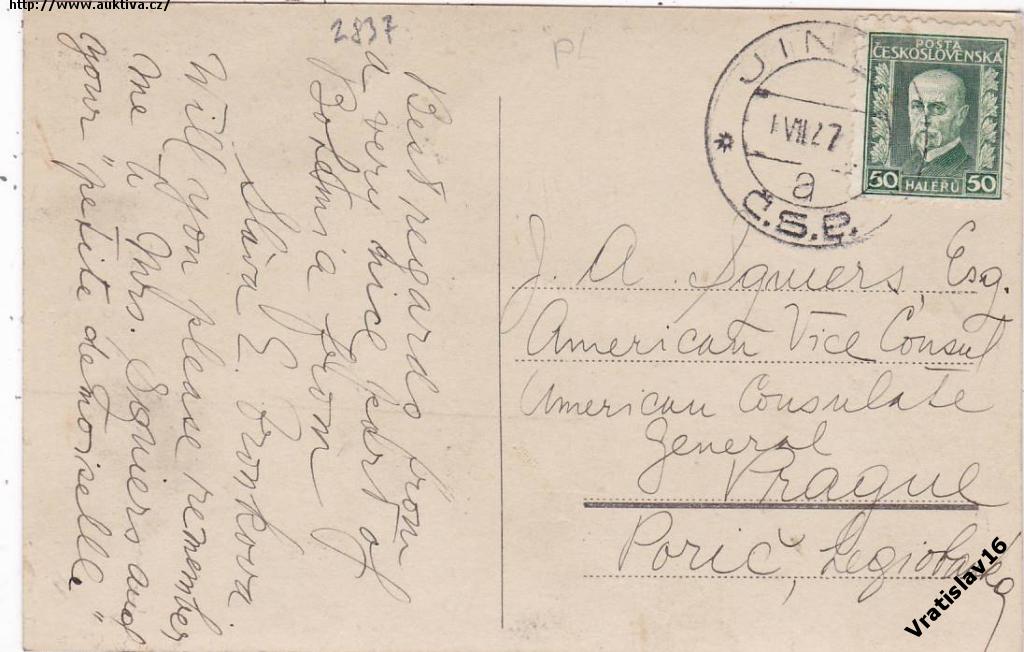 http://www.auktiva.cz/
2837
PL
Best regards from
a very nice part of
Bohemia from
Sláva E.
Will you please remember
me to Mrs. Squiers and
your "petite demoiselle"
POŠTA
ČESKOSLOVENSKÁ
50 HALÉŘŮ 50
VIII 27
a
Č.S.P.
J. A. Squiers, Esq.
American Vice Consul
American Consulate
General
Prague
Poric,
Vratislav16